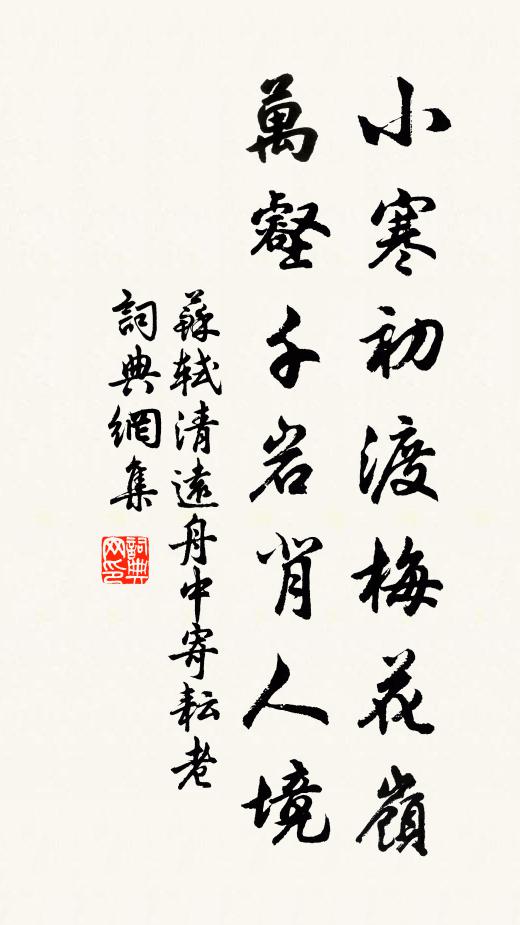 小寒初渡梅花嶺
萬壑千岩背人境
蘇軾清遠舟中寄耘老
詞典網集
詞典網印